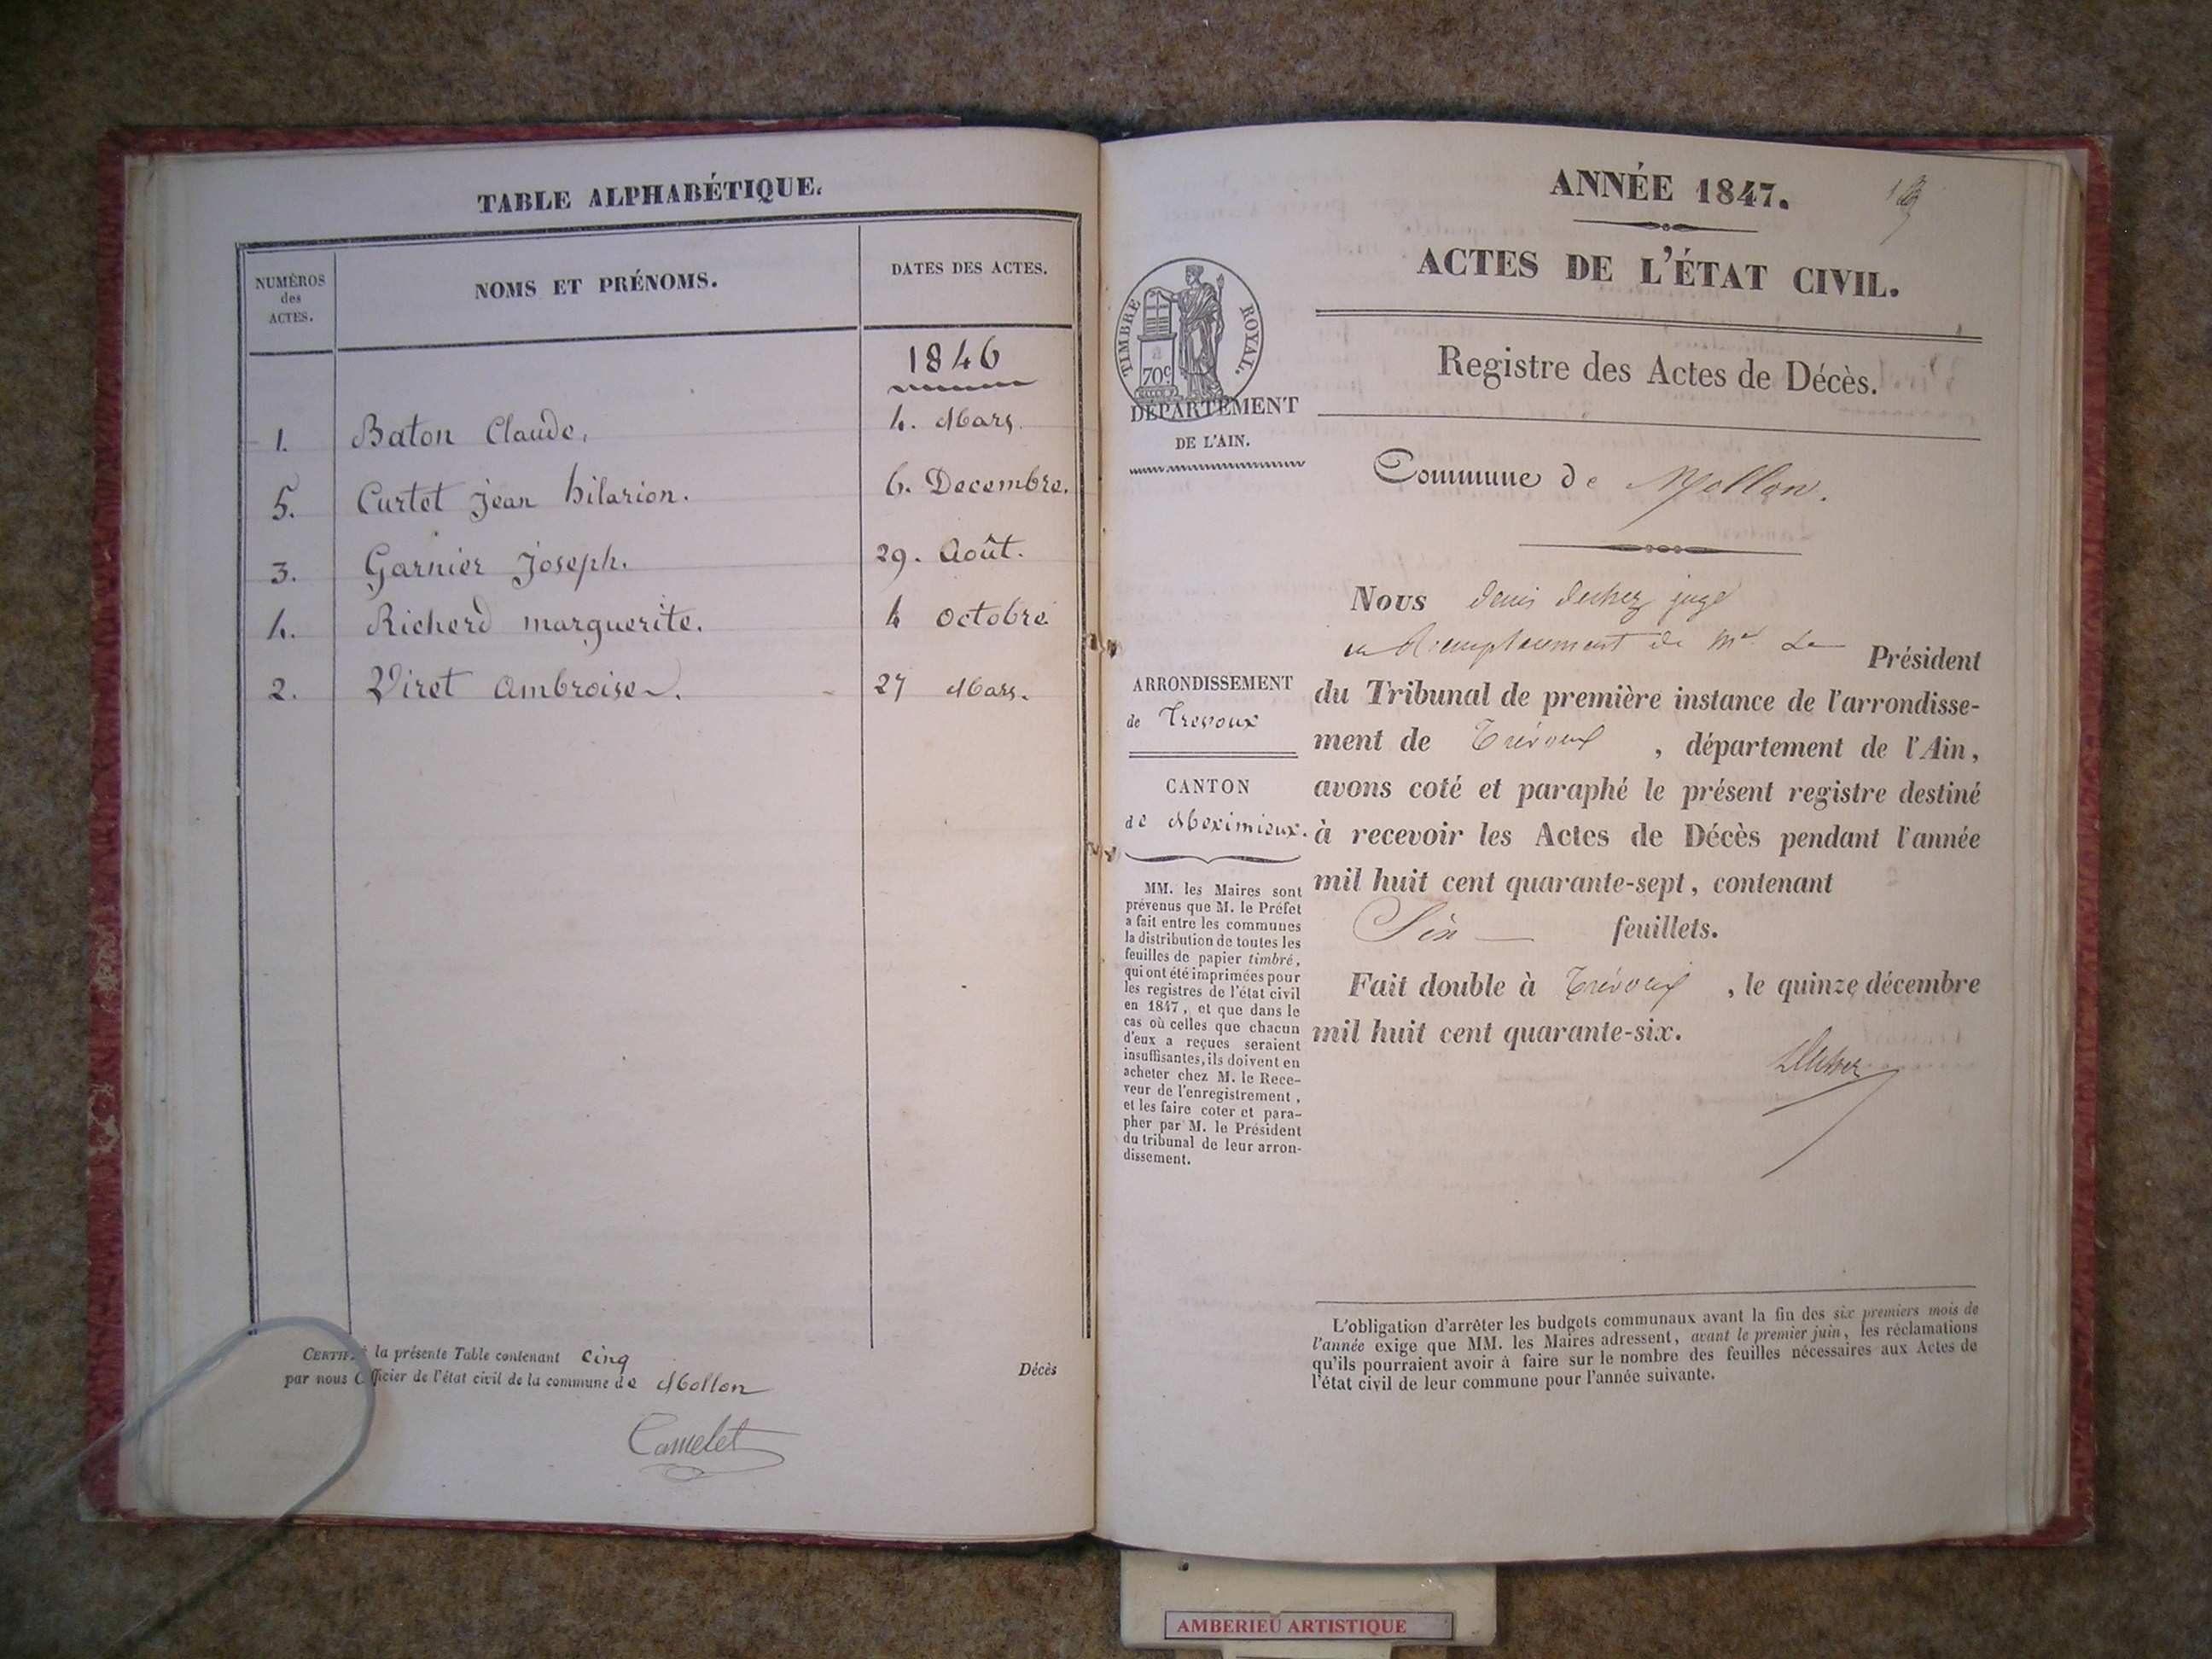 TABLE ALPHABÉTIQUE.
NUMÉROS
des
ACTES.
NOMS ET PRÉNOMS.
DATES DES ACTES.
1846
1. Baton Claude, 4. Mars.
5. Curtet Jean hilarion. 6. Decembre.
3. Garnier Joseph. 29. Août.
4. Richerd marguerite. 4 octobre
2. Viret ambroise. 27 Mars.
la présente Table contenant cinq Décès
par nous Officier de l'état civil de la commune de Mollon
Camelet
ANNÉE 1847.
ACTES DE L'ÉTAT CIVIL.
TIMBRE ROYAL.
70c
DÉPARTEMENT
DE L'AIN.
Registre des Actes de Décès.
Commune de Mollon.
Nous denis juge
en Remplacement de Mr Le Président
du Tribunal de première instance de l'arrondisse-
ment de Trévoux, département de l'Ain,
avons coté et paraphé le présent registre destiné
à recevoir les Actes de Décès pendant l'année
mil huit cent quarante-sept, contenant
Six feuillets.
Fait double à Trévoux, le quinze décembre
mil huit cent quarante-six.
ARRONDISSEMENT
de Trevoux
CANTON
de Meximieux.
MM. les Maires sont
prévenus que M. le Préfet
a fait entre les communes
la distribution de toutes les
feuilles de papier timbré,
qui ont été imprimées pour
les registres de l'état civil
en 1847, et que dans le
cas où celles que chacun
d'eux a reçues seraient
insuffisantes, ils doivent en
acheter chez M. le Rece-
veur de l'enregistrement,
et les faire coter et para-
pher par M. le Président
du tribunal de leur arron-
dissement.
L'obligation d'arrêter les budgets communaux avant la fin des six premiers mois de
l'année exige que MM. les Maires adressent, avant le premier juin, les réclamations
qu'ils pourraient avoir à faire sur le nombre des feuilles nécessaires aux Actes de
l'état civil de leur commune pour l'année suivante.
AMBERIEU ARTISTIQUE